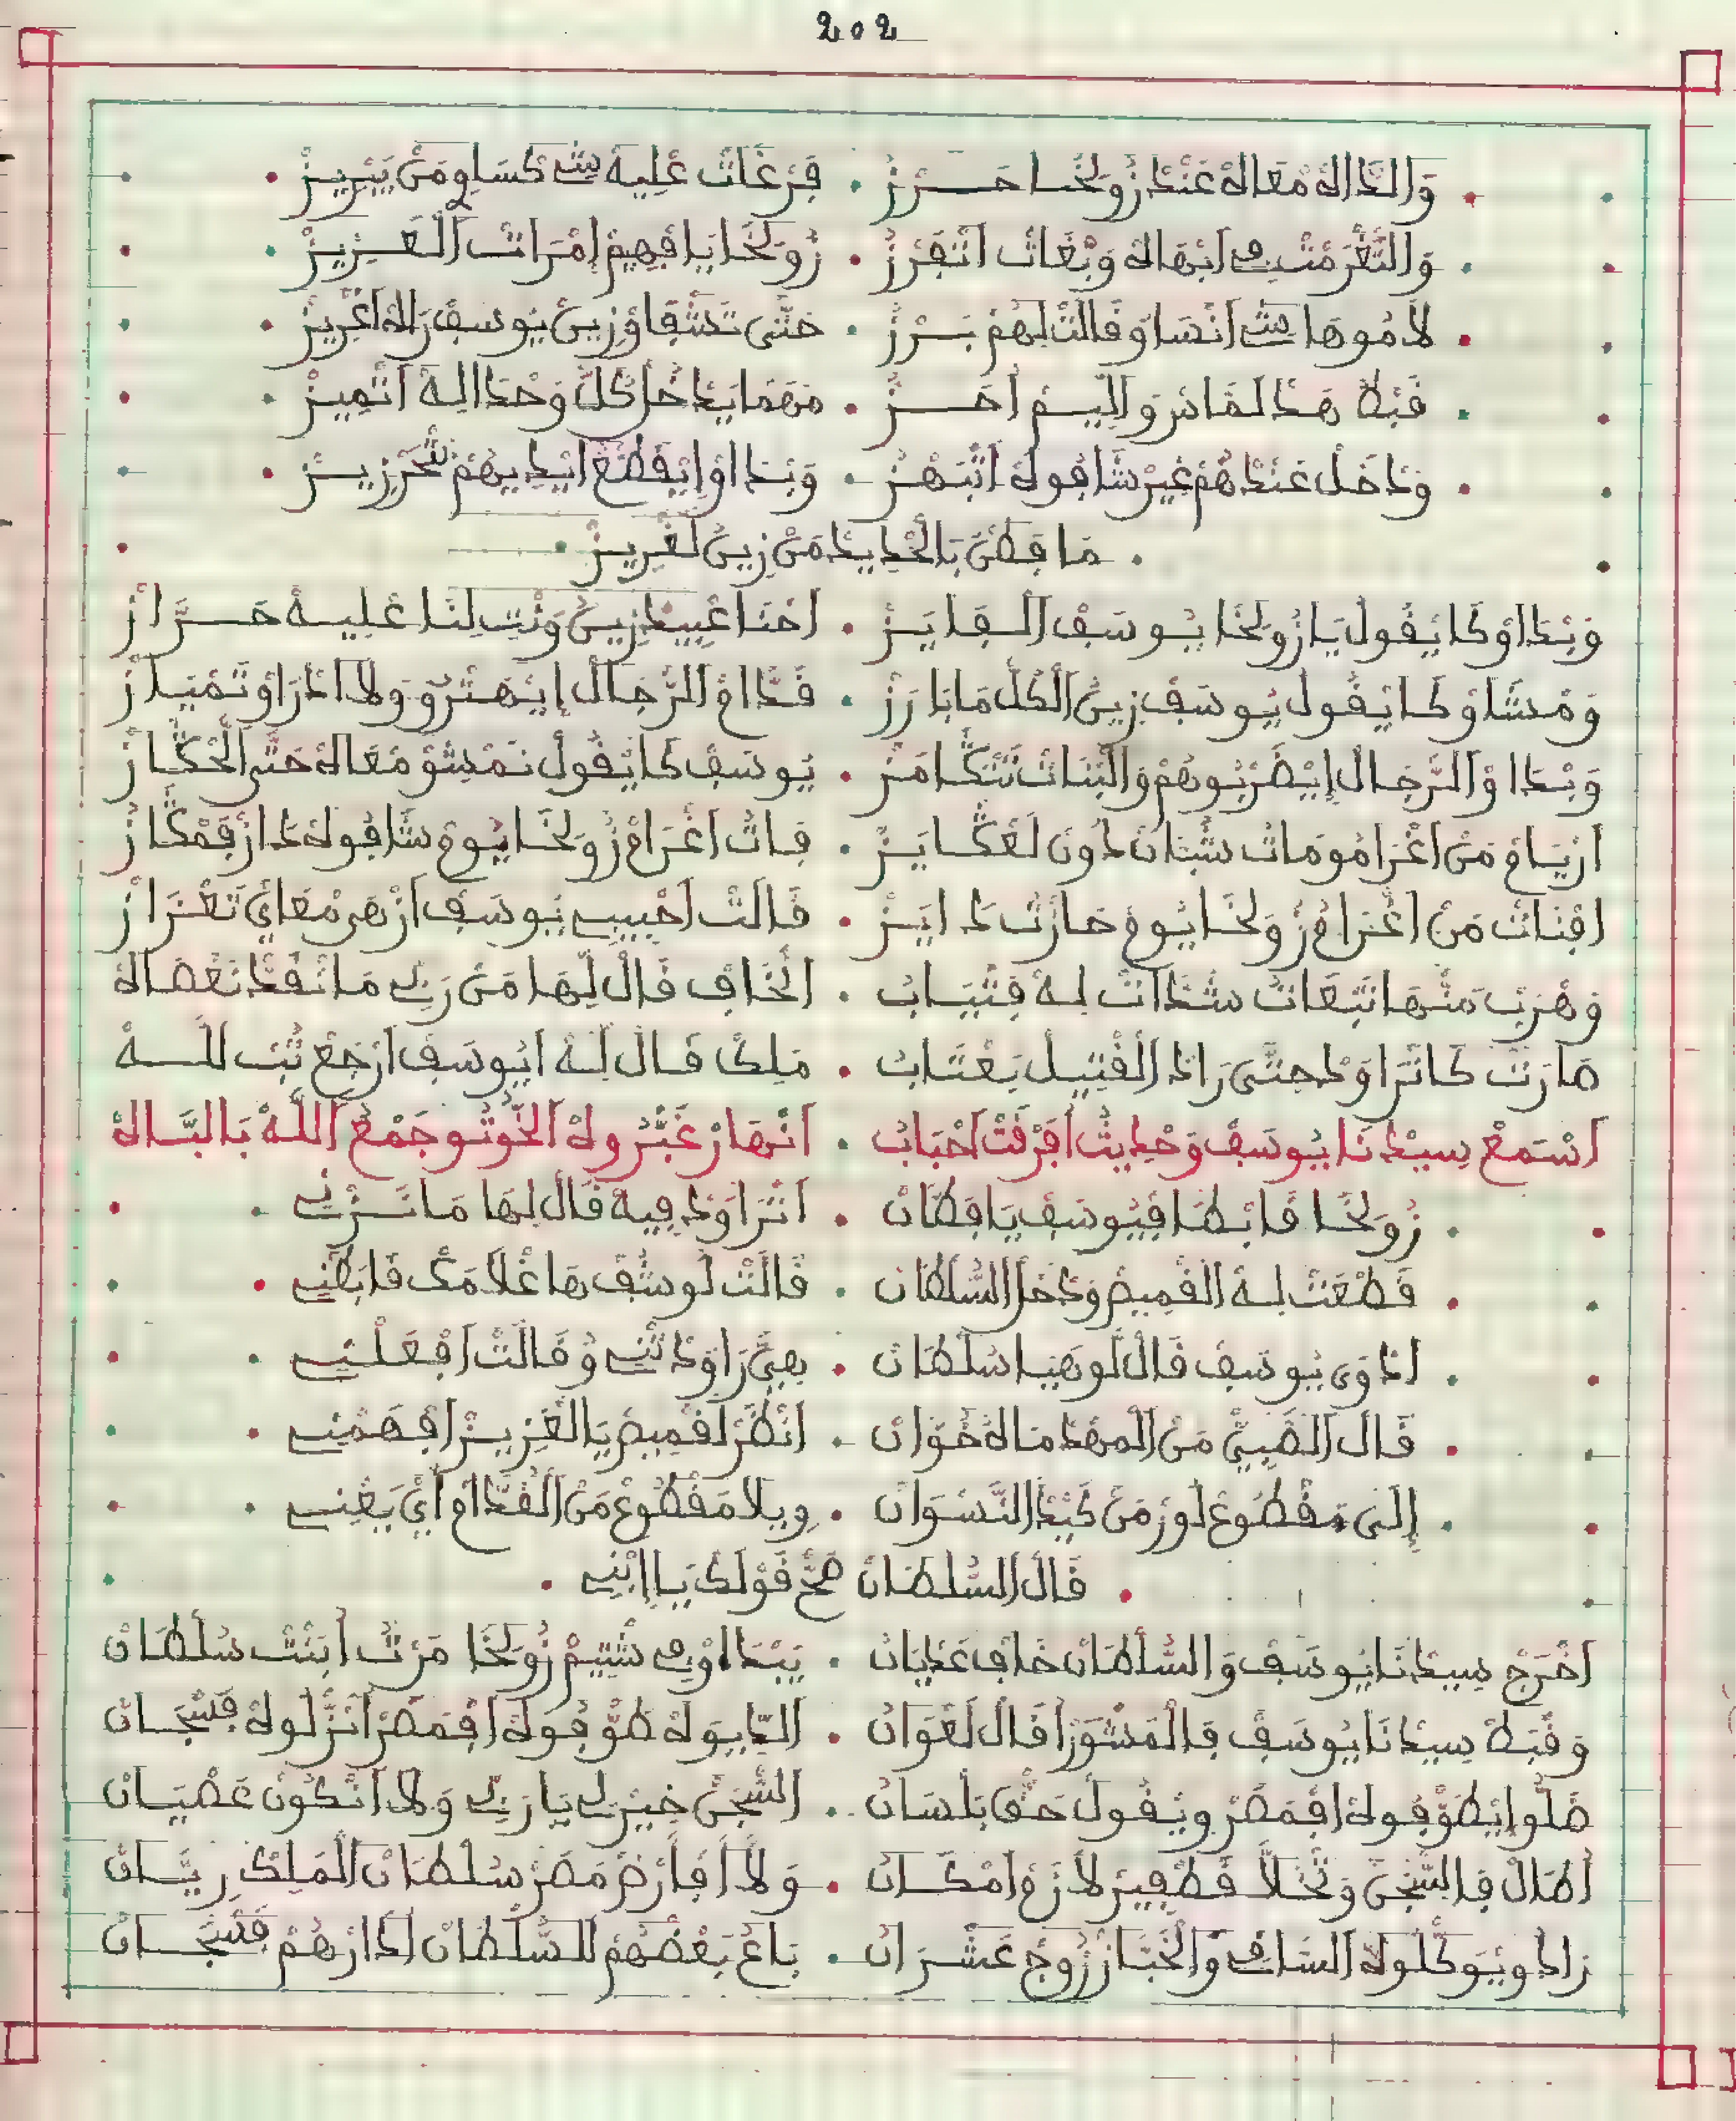 202
وَالدَّاهْ مْعَاهْ عَنْدْ زُولِيخَا حَرْزْ • فَرْغَاتْ عْلِيهْ شِي كْسَاوِي مَنْ بَيْزِيزْ
وَالتَّغْرَمْتْ فِي ابْهَاهْ وَبْغَاتْ اتْفَرْزْ • زُولِيخَا يَا فْهِيمْ إِمْرَاتْ الْعَزِيزْ
لَامُوهَا شِي انْسَا وْقَالَتْ لْهُمْ بَرْزْ • حَتَّى تَشْفَاوْ زِينْ يُوسَفْ رَاهْ اعْزِيزْ
قَبْطْ هَذْ لَمْقَاسْ وَاللِّيمْ أَحَزْ • مَهْمَا يَدْخُلْ كُلْ وَحْدَا لِهْ اتْمِيزْ
وَدْخَلْ عَنْدْهُمْ غِيرْ شَافُوهْ انْبَهْزْ • وَبْدَاوْ إِيْقَطْعْ ايْدِيهُمْ تَحْزِيزْ
مَا فَطْنْ بَالْحْدِيدْ مَنْ زِينْ لَعْزِيزْ
وَبْدَاوْ كَايْقُولْ يَا زُولِيخَا يُوسَفْ الْفَايَزْ • احْنَا عْبِيدْ زِينْ وَنْتِ لْنَا عْلِيهْ حَرَّازْ
وَمْشَاوْ كَايْقُولْ يُوسَفْ زِينْ الْكُلْ مَابَارَزْ • قَدَّامْ الرْجَالْ إِيْهَتْرُو وَلَا ادْرَاوْ تَمْيَازْ
وَبْدَاوْ الرّْجَالْ إِيْضَرْبُوهُمْ وَالْبْنَاتْ تَتْكَامَزْ • يُوسَفْ كَايْقُولْ نَمْشِوْ مْعَاهْ حَتَّى الْحْكَازْ
ازْيَامْ مَنْ اغْرَامُو مَاتْ شْبَّانْ دُونْ لَعْكَايَزْ • فَاتْ اغْرَامْ زُولِيخَا يُومْ شَافُوهْ دَازْ فَمْكَازْ
افْنَاتْ مَنْ اغْرَامْ زُولِيخَا يُومْ حَازْتْ دَايَزْ • قَالَتْ احْبِيبِي يُوسَفْ ازْهَى مْعَايْ تَعْزَازْ
وَهْرَبْ مَنْهَا تَبْعَاتْ شَدَّاتْ لِهْ فَتْيَابْ • الْخَافْ قَالْ لِّهَا مَنْ رَبِّي مَا نَقْدْ نَعْصَاهْ
صَارَتْ كَاتْرَاوَدْ حَتَّى رَادْ الْقْتِيلْ يَعْتَابْ • مَلِكْ قَالْ لِهْ ايُوسَفْ ارْجَعْ تُبْ للهْ
اسْمَعْ سِيدْنَا يُوسَفْ وَحْدِيثْ افْرَقْتْ احْبَابْ • انْهَارْ غَبْرُوهْ الْخُوتُو جَمْعْ اللّٰهْ بَالْبَاهْ
زُولِيخَا قَابْطَا فْيُوسَفْ يَا فَطَّانْ • اتْرَاوَدْ فِيهْ قَالْ لِهَا مَا نَزْنِي
قَطْعَتْ لِهْ الْقْمِيصْ وَدْخَلْ السُّلْطَانْ • قَالَتْ لُو شُفْ هَا غْلَامَكْ قَابَطْنِي
ادْوَى يُوسَفْ قَالْ لُو هَيَا سُلْطَانْ • هِيَّ رَاوْدَتْنِي وُ قَالَتْ افْعَلْنِي
قَالْ الصّْبِيْ مَنْ الْمهْدْ مَاهْ خُوَّانْ • انْظُرْ لَقْمِيصْ يَا الْعَزِيزْ افْهَمْنِي
إِلَى مَقْطُوعْ لُورْ مَنْ كَيْدْ النَّسْوَانْ • وِيلَا مَقْطُوعْ مَنْ الْقُدَّامْ أَيْ يَعْنِي
قَالْ السُّلْطَانْ صَحّْ قَوْلَكْ يَا إِبْنِي
اخْرَجْ سِيدْنَا يُوسَفْ وَالسُّلْطَانْ خَافْ عَدْيَانْ • يَبْدَاوْ فِي شْتِيمْ زُولِيخَا مَرْتْ ابْنْتْ سُلْطَانْ
وَقْبَطْ سِيدْنَا يُوسَفْ فَالْمَشْوَرْ اقَالْ لَعْوَانْ • الدِّيوَهْ طَوّْفُوهْ افْمَصْرْ انَزّْلُوهْ فَسّْجَانْ
ضَلُّوا يْطَوّْفُوهْ افْمَصْرْ ويْقُولْ حَقْ بَلْسَانْ • السّْجَنْ خِيرْ لِي يَا رَبِّي وَلَا انْكُونْ عَصْيَانْ
أطَالْ فَالسّْجَنْ وَتْخَلَّا قَطْفِيرْ لَازَمْ امْكَانْ • وَلَّا أفَأرْضْ مَصْرْ سُلْطَانْ الْمَلِكْ رِيَّانْ
زَادُو يْوَكّْلُوهْ السَّاقِي وَالْخَبَّازْ زُوجْ عَشْرَانْ • بَاعْ بَعْضْهُمْ للسُّلْطَانْ ادَارْهُمْ فَسّْجَانْ